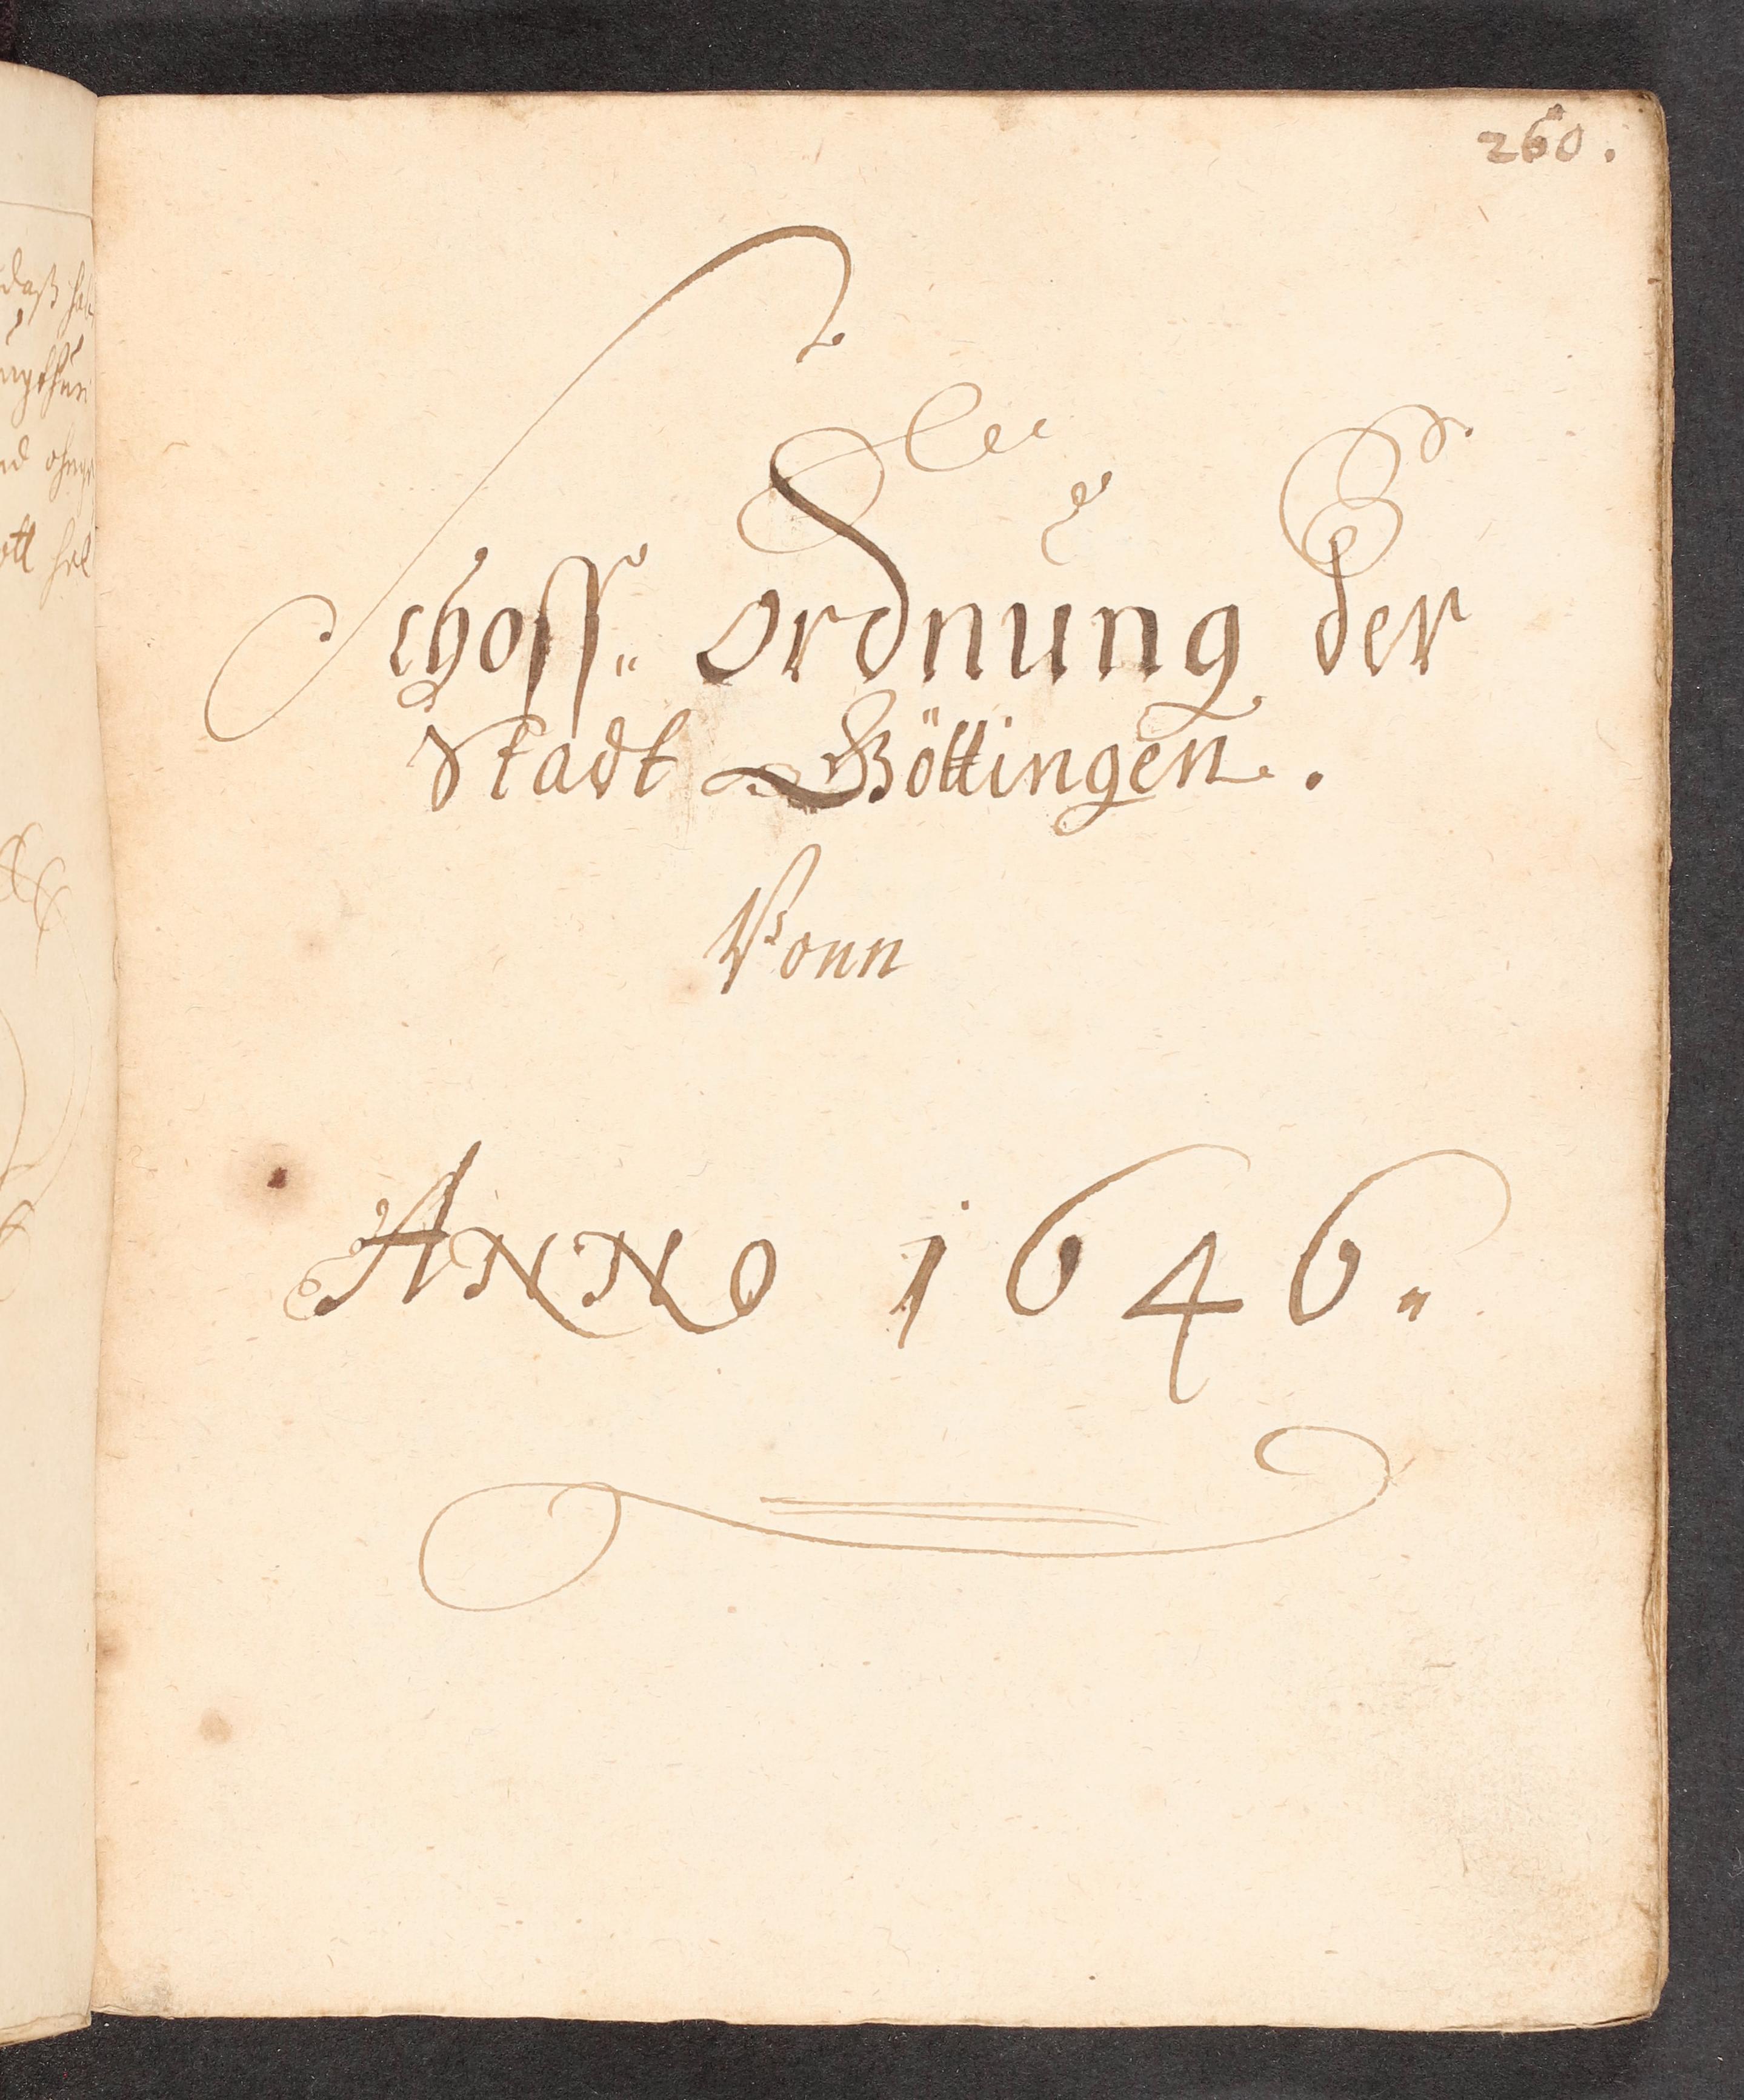 260.
Schoss„ Ordnung der
Stadt Göttingen.
Vonn
ANNO 1646.